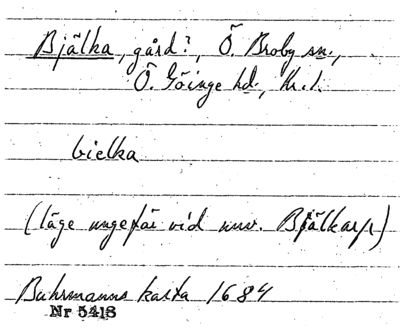 Bjälka, gård?, Ö. Broby sn.,
Ö. Göinge hd., Kr. l.
bielka
(läge ungefär vid nuv. Bjälkarp)
Buhrmanns karta 1684
Nr 5418